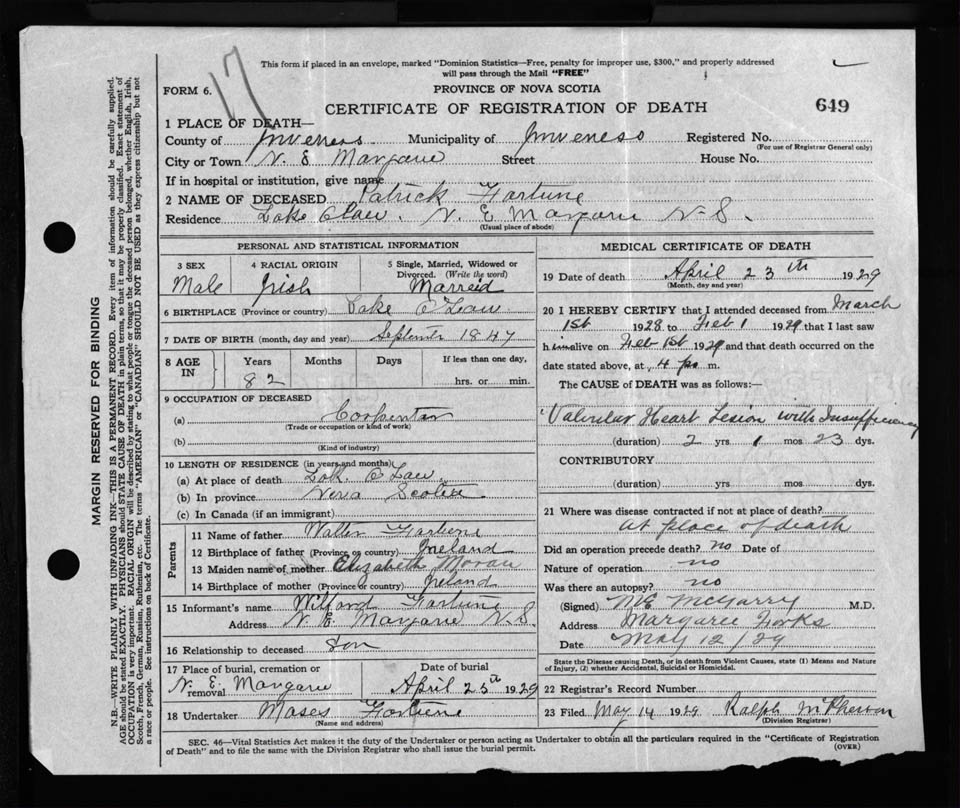 This form if placed in an envelope, marked "Dominion Statistics—Free, penalty for improper use, $300," and properly addressed
will pass through the Mail "FREE"
17
FORM 6.
PROVINCE OF NOVA SCOTIA
CERTIFICATE OF REGISTRATION OF DEATH
649
1 PLACE OF DEATH—
County of Inverness Municipality of Inverness Registered No.
(For use of Registrar General only)
City or Town N. E Margaree Street House No.
If in hospital or institution, give name
2 NAME OF DECEASED Patrick Fortune
Residence Lake Claw. N. E Margaree N.S.
(Usual place of abode)
PERSONAL AND STATISTICAL INFORMATION
3 SEX 4 RACIAL ORIGIN 5 Single, Married, Widowed or
Divorced. (Write the word)
Male Irish Marreid
6 BIRTHPLACE (Province or country) Lake O'Law
7 DATE OF BIRTH (month, day and year) September 1847
8 AGE IN Years Months Days If less than one day,
82 hrs. or min.
9 OCCUPATION OF DECEASED
(a) Corpenter
(Trade or occupation or kind of work)
(b)
(Kind of industry)
10 LENGTH OF RESIDENCE (in years and months)
(a) At place of death Lake O'Law
(b) In province Nova Scotia
(c) In Canada (if an immigrant)
Parents
11 Name of father Walter Fortune
12 Birthplace of father (Province or country) Ireland
13 Maiden name of mother Elizabeth Moran
14 Birthplace of mother (Province or country) Ireland
15 Informant's name Wilfard Fortune
Address N. E. Margaree N.S.
16 Relationship to deceased Son
17 Place of burial, cremation or Date of burial
removal N. E. Margaree April 25th 1929
18 Undertaker Moses Fortune
(Name and address)
MEDICAL CERTIFICATE OF DEATH
19 Date of death April 23th 1929
(Month, day and year)
20 I HEREBY CERTIFY that I attended deceased from March
1st 1928 to Feb 1 1929 that I last saw
him alive on Feb 1st 1929 and that death occurred on the
date stated above, at 4 p. m.
The CAUSE of DEATH was as follows:
Valvular Heart Lesion with Insufficiency
(duration) 2 yrs 1 mos 23 dys.
CONTRIBUTORY
(duration) yrs. mos. dys.
21 Where was disease contracted if not at place of death?
at place of death
Did an operation precede death? no Date of
Nature of operation no
Was there an autopsy? no
(Signed) McGarry M.D.
Address Margaree Forks
Date May 12/29
State the Disease causing Death, or in death from Violent Causes, state (1) Means and Nature
of Injury, (2) whether Accidental, Suicidal or Homicidal.
22 Registrar's Record Number
23 Filed May 14 1929 Ralph McPherson
(Division Registrar)
SEC. 46—Vital Statistics Act makes it the duty of the Undertaker or person acting as Undertaker to obtain all the particulars required in the "Certificate of Registration
of Death" and to file the same with the Division Registrar who shall issue the burial permit.
(OVER)
MARGIN RESERVED FOR BINDING
N.B.—WRITE PLAINLY WITH UNFADING INK—THIS IS A PERMANENT RECORD. Every item of information should be carefully supplied.
AGE should be stated EXACTLY. PHYSICIANS should STATE CAUSE OF DEATH in plain terms, so that it may be properly classified. Exact statement of
OCCUPATION is very important. RACIAL ORIGIN will be described by stating to what people or tongue the deceased person belonged, whether English, Irish,
Scotch, French, German, Russian, Ruthenian, etc. The terms "AMERICAN" or "CANADIAN" SHOULD NOT BE USED as they express citizenship but not
a race or people. See instructions on back of Certificate.